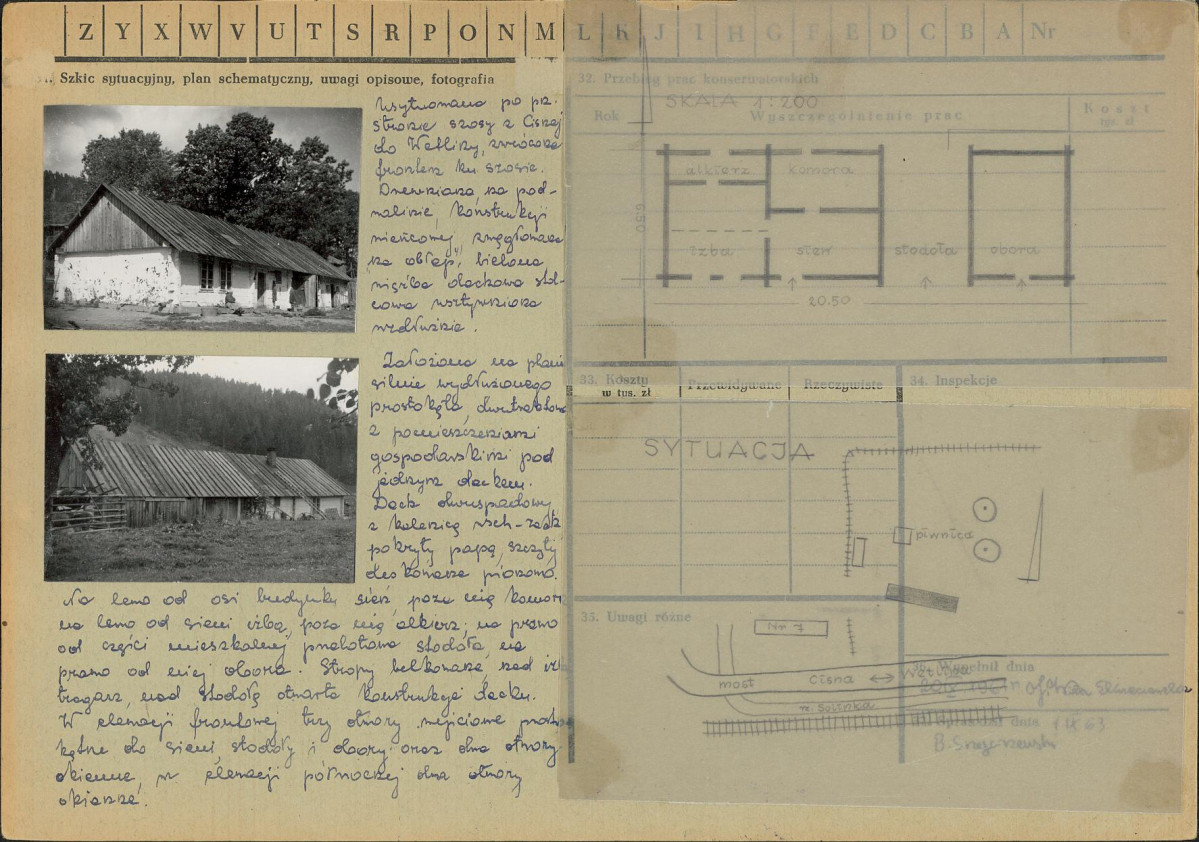 Z Y X W V U T S R P O N M L K J I H G F E D C B A Nr
31. Szkic sytuacyjny, plan schematyczny, uwagi opisowe, fotografia
Usytuowana po pr.
stronie szosy z Cisnej
do Wetliny, zwrócona
frontem ku szosie.
Drewniana, na pod-
walinie, konstrukcji
wieńcowej, węgłowana
na obłap, bielona
więźba dachowa stol-
cowa usztywniona
wzdłużnie.
Założona na planie
silnie wydłużonego
prostokąta, dwutraktowa
z pomieszczeniami
gospodarskimi pod
jednym dachem.
Dach dwuspadowy
z kalenicą wsch-zach,
pokryty papą, szczyty
deskowane pionowo.
Na lewo od osi budynku sień, poza nią komora
na lewo od sieni izba, poza nią alkierz; na prawo
od części mieszkalnej przelotowa stodoła, na
prawo od niej obora. Stropy belkowane, nad izbą
tragarz, nad stodołą otwarta konstrukcja dachu.
W elewacji frontowej trzy otwory wejściowe prosto-
kątne do sieni, stodoły i obory oraz dwa otwory
okienne, w elewacji północnej dwa otwory
okienne.
32. Przebieg prac konserwatorskich
SKALA 1:200
Rok
Wyszczególnienie prac
Koszt
tys. zł
alkierz
komora
6.50
izba
sień
stodoła
obora
20.50
33. Koszty
w tys. zł
Przewidywane
Rzeczywiste
34. Inspekcje
SYTUACJA
piwnica
35. Uwagi różne
Nr 7
most
Cisna ↔ Wetlina
rz. Solinka
36. Wypełnił dnia
dnia